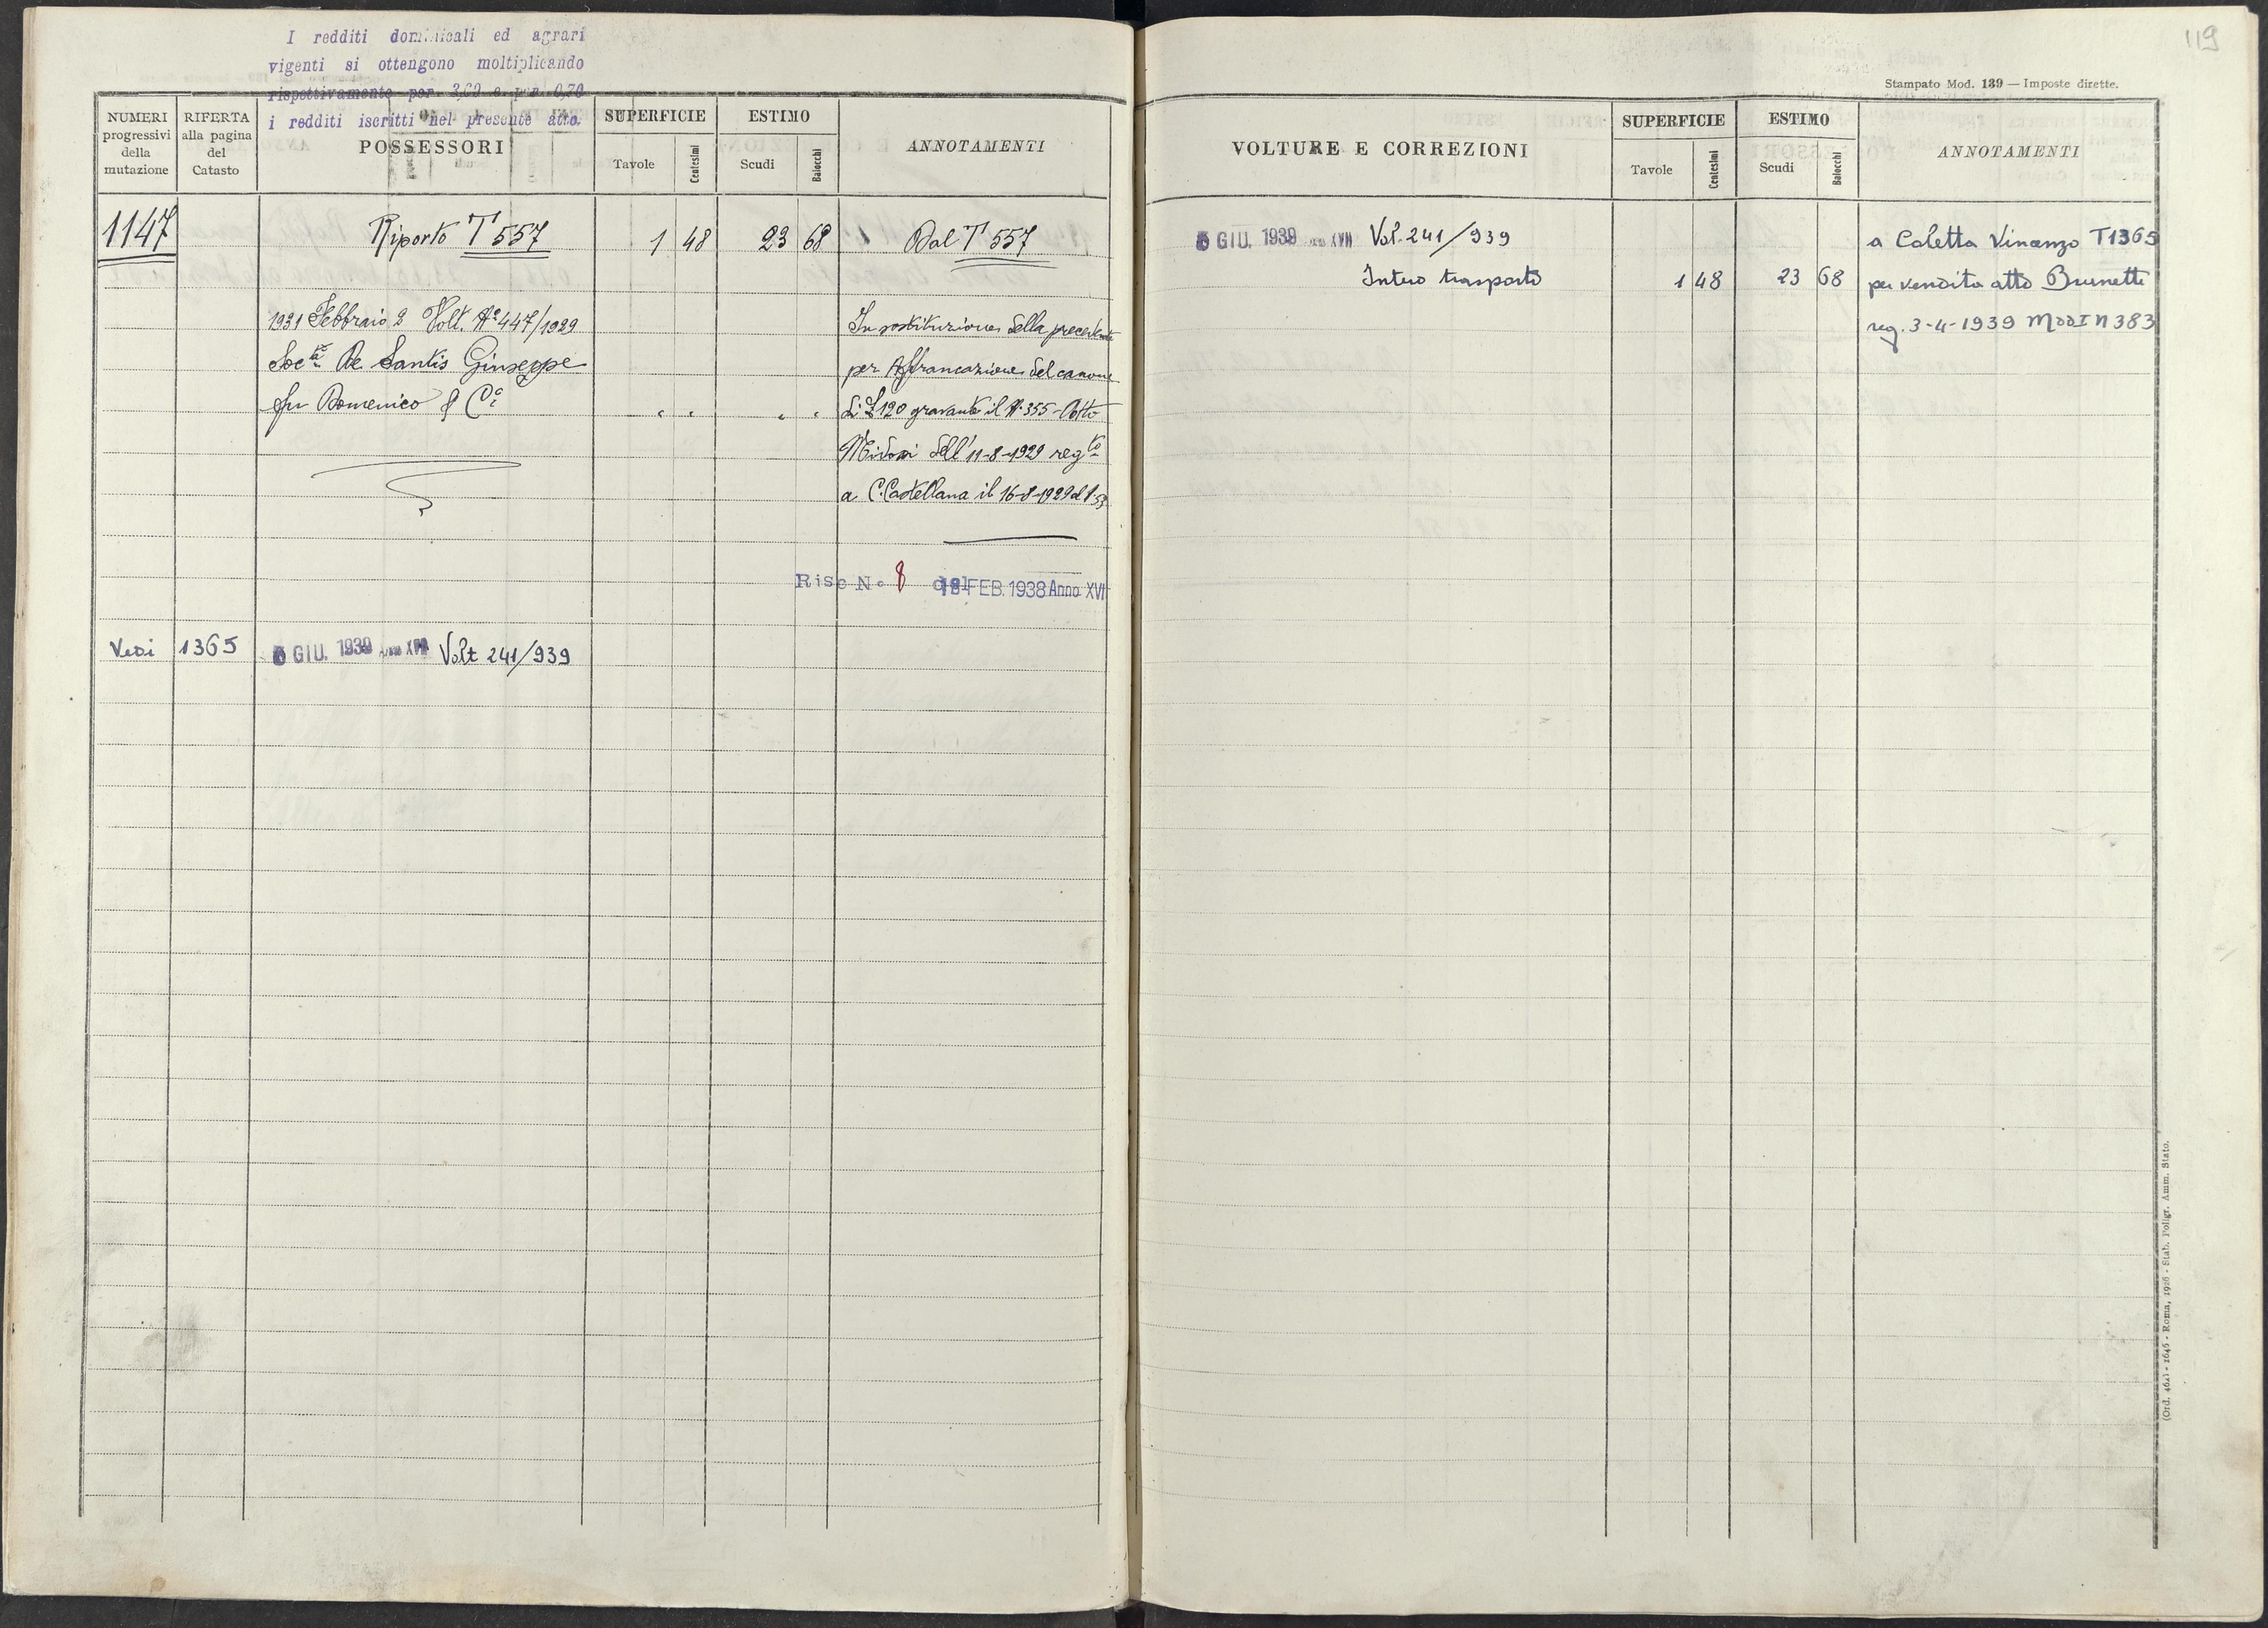 I redditi dominicali ed agrari
vigenti si ottengono moltiplicando
rispettivamente per 3,60 e per 0,70
i redditi iscritti nel presente atto.
NUMERI progressivi della mutazione
RIFERTA alla pagina del Catasto
POSSESSORI
SUPERFICIE
Tavole
Centesimi
ESTIMO
Scudi
Baiocchi
ANNOTAMENTI
1147 Riporto T 557 1 48 23 68 Dal T 557
1931 Febbraio 2 Volt. N° 447/1929
Soc.tà De Santis Giuseppe
fu Domenico & C.i " " " "
In sostituzione della precedente
per Affrancazione del canone
di £ 120 gravante il N. 355 - Atto
dell' 11-8-1929 reg.to
a C. Castellana il 16-8-1929 al
Risc N. 8 del 18 FEB. 1938 Anno XVI
Vedi 1365 5 GIU. 1939 Anno XVII Volt 241/939
119
Stampato Mod. 139 — Imposte dirette.
VOLTURE E CORREZIONI
SUPERFICIE
Tavole
Centesimi
ESTIMO
Scudi
Baiocchi
ANNOTAMENTI
5 GIU. 1939 Anno XVII Vol. 241/939
Intero trasporto 1 48 23 68
a Coletta Vincenzo T1365
per vendita atto Brunetti
reg. 3-4-1939 Mod I N 383
(Ord. 462) - 1646 - Roma, 1926 - Stab. Poligr. Amm. Stato.